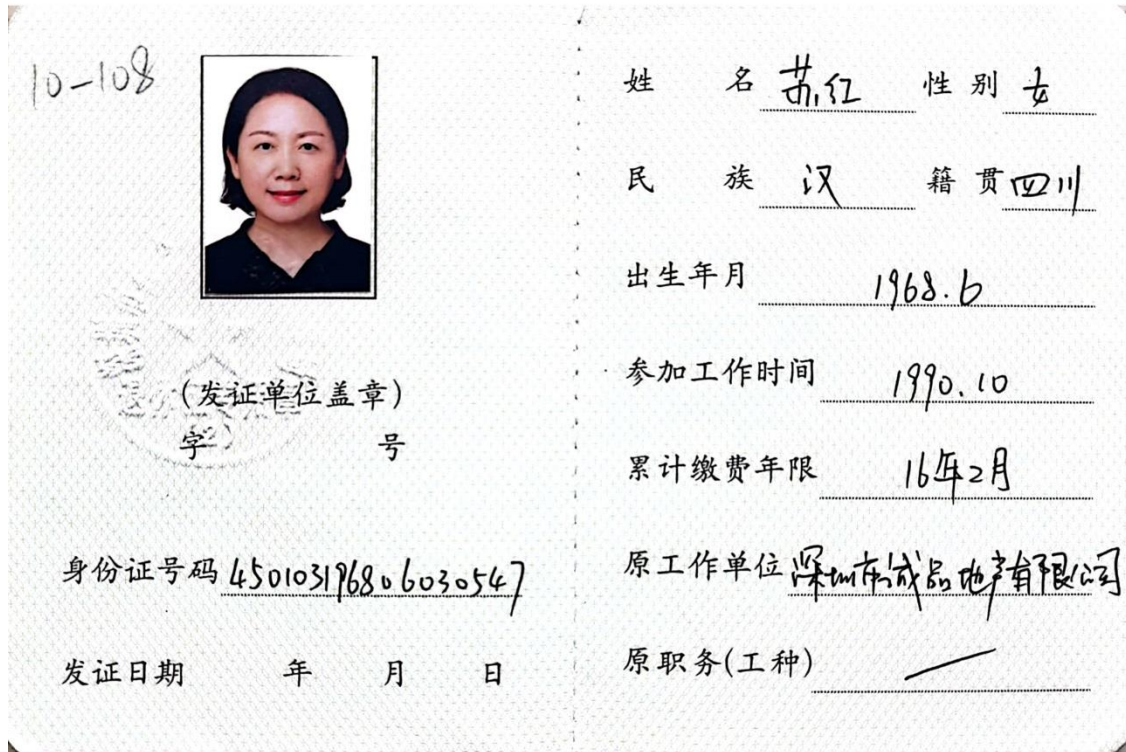 10-108
(发证单位盖章)
字 号
身份证号码 450103196806030547
发证日期 年 月 日
姓 名 苏红 性 别 女
民 族 汉 籍 贯 四川
出生年月 1968.6
参加工作时间 1990.10
累计缴费年限 16年2月
原工作单位 深圳市诚品地产有限公司
原职务(工种) /